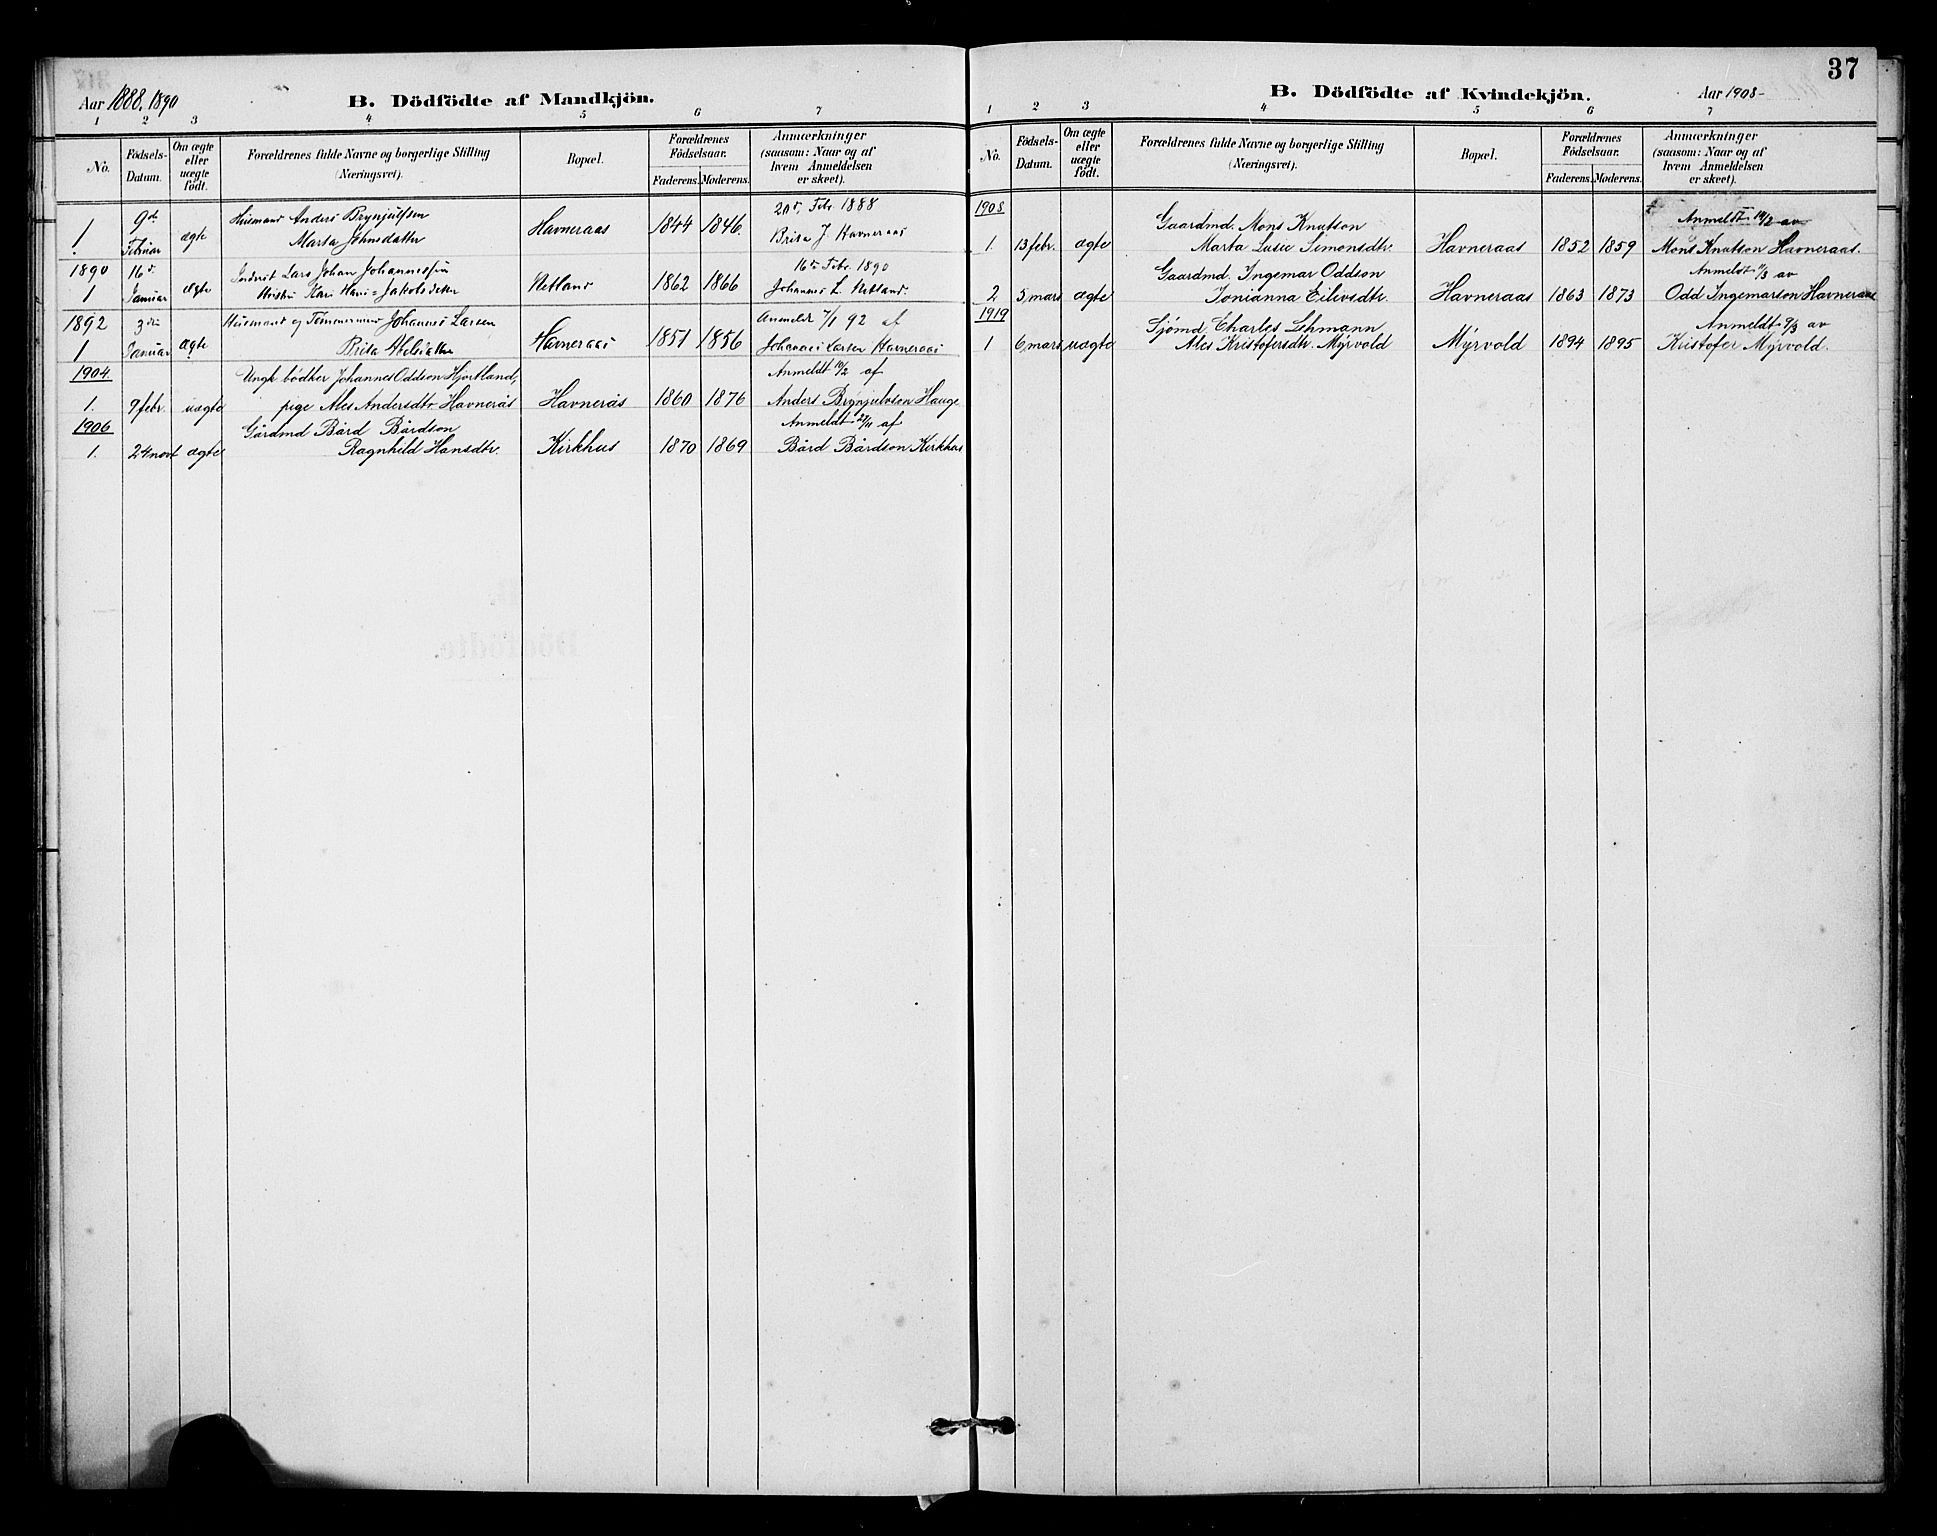 Aar 1888. 1890
B. Dödfödte af Mandkjön.
1 2 3 4 5 6 7
No. Födsels-Datum. Om ægte eller uægte födt. Forældrenes fulde Navne og borgerlige Stilling (Næringsvei). Bopæl. Forældrenes Födselsaar. Faderens. Moderens. Anmærkninger (saasom: Naar og af hvem Anmeldelsen er skeet).
9de Husmand Anders Brynjulfsen 20de Febr 1888
1 Februar ægte Marta Johnsdatter Havneraas 1844 1846. Brita J. Havneraas
1890 16de Lars Johan Johannessen 16de Febr. 1890
1 Januar ægte Hustru Kari Jakobsdatter Netland 1862 1866 Johannes L. Netland.
1892 3die Husmand og Tømmermand Johannes Larsen Anmeldt 7/1 92 af
1 Januar ægte Brita Havneraas 1851 1856 Johannes Larsen Havneraas
1904 Ungk. bødker Johannes Oddson Hjortland, Anmeldt /2 af
1. 9 febr. uægte pige Ales Andersdtr Havnerås Havnerås 1860 1876 Anders Brynjulvson Hauge
1906 Gårdmd Bård Bårdson Anmeldt 27/11 af
1. 24 novt ægte Ragnhild Hansdtr. Kirkhus 1870 1869 Bård Bårdson Kirkhus
37
B. Dödfödte af Kvindekjön.
Aar 1908-
1 2 3 4 5 6 7
No. Födsels-Datum. Om ægte eller uægte födt. Forældrenes fulde Navne og borgerlige Stilling (Næringsvei). Bopæl. Forældrenes Födselsaar. Faderens. Moderens. Anmærkninger (saasom: Naar og af hvem Anmeldelsen er skeet).
1908 Gaardmd. Mons Knutson Anmeldt /2 av
1. 13 febr. ægte Marta Lusie Simonsdtr. Havneraas 1852 1859 Mons Knutson Havneraas.
Gaardmd. Ingemar Oddson Anmeldt /3 av
2 5 mars ægte Jonianna Eilivsdtr. Havneraas 1863 1873 Odd Ingemarson Havneraas
1919 Sjømd. Charles Lehmann Anmeldt 9/3 av
1 6 mars uægte Ales Kristofersdtr. Myrvold Myrvold 1894 1895 Kristofer Myrvold.